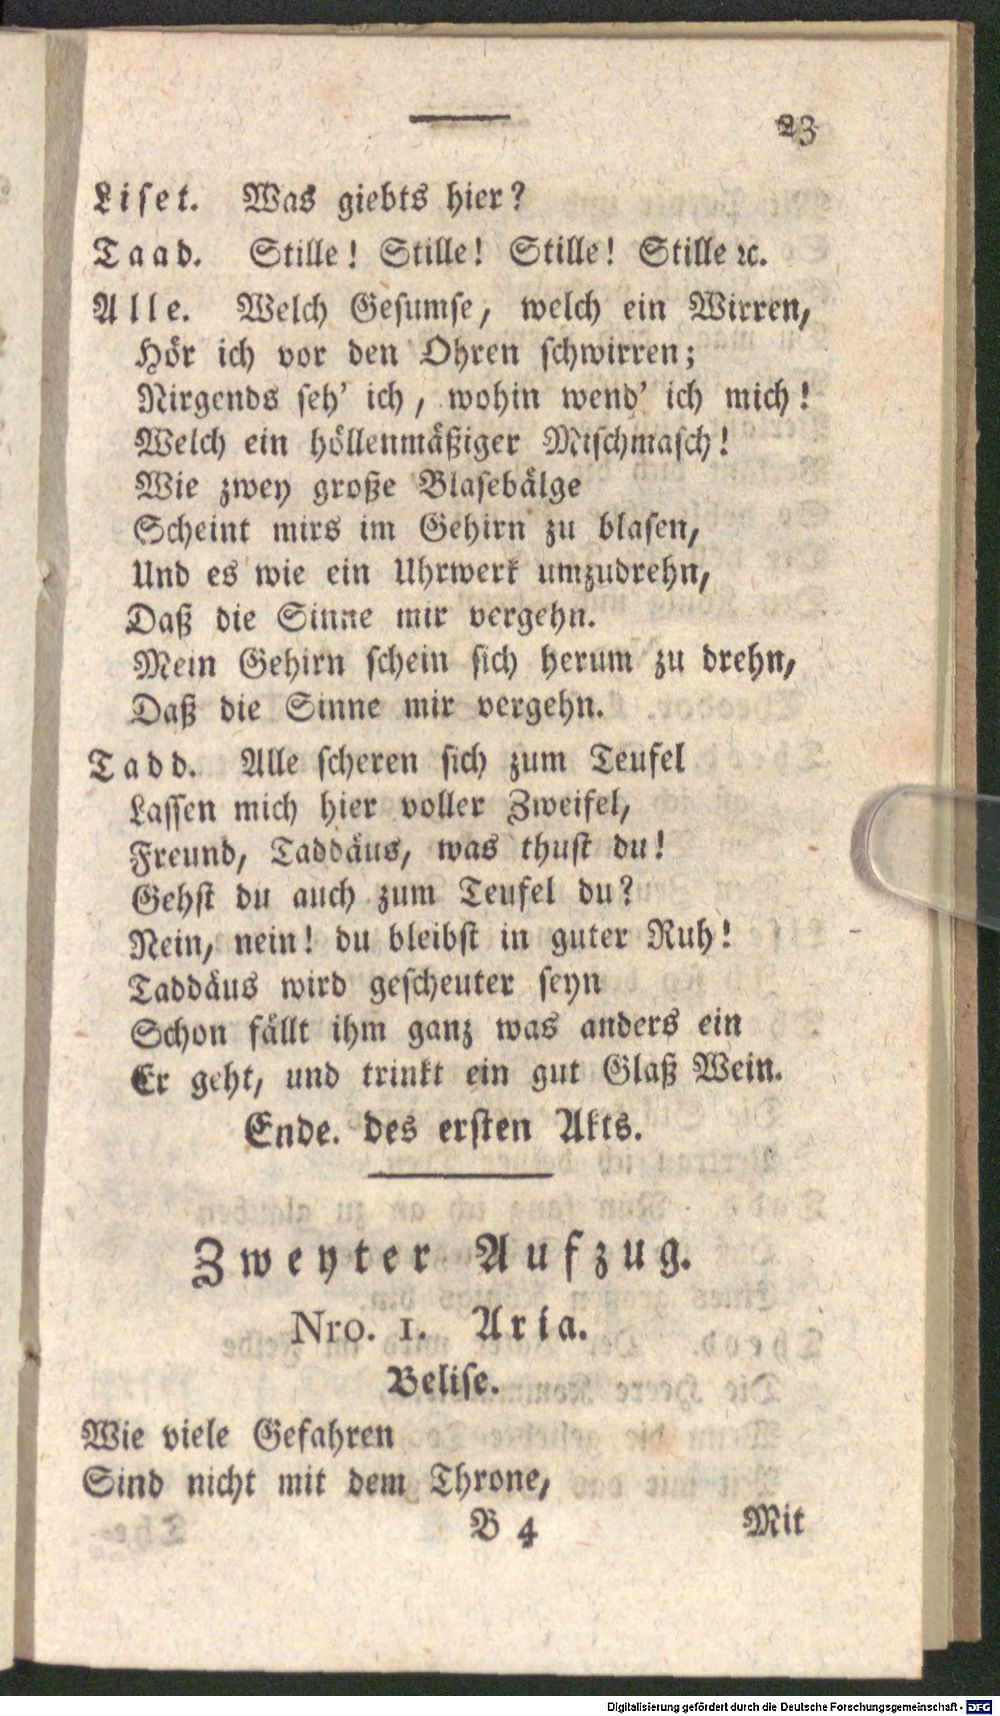 23
Liset. Was giebts hier?
Taad. Stille! Stille! Stille! Stille ꝛc.
Alle. Welch Gesumse, welch ein Wirren,
Hör ich vor den Ohren schwirren;
Nirgends seh' ich, wohin wend' ich mich!
Welch ein höllenmäßiger Mischmasch!
Wie zwey große Blasebälge
Scheint mirs im Gehirn zu blasen,
Und es wie ein Uhrwerk umzudrehn,
Daß die Sinne mir vergehn.
Mein Gehirn schein sich herum zu drehn,
Daß die Sinne mir vergehn.
Tadd. Alle scheren sich zum Teufel
Lassen mich hier voller Zweifel,
Freund, Taddäus, was thust du!
Gehst du auch zum Teufel du?
Nein, nein! du bleibst in guter Ruh!
Taddäus wird gescheuter seyn
Schon fällt ihm ganz was anders ein
Er geht, und trinkt ein gut Glaß Wein.
Ende. des ersten Akts.
Zweyter Aufzug.
Nro. 1. Aria.
Belise.
Wie viele Gefahren
Sind nicht mit dem Throne,
B 4 Mit
Digitalisierung gefördert durch die Deutsche Forschungsgemeinschaft - DFG